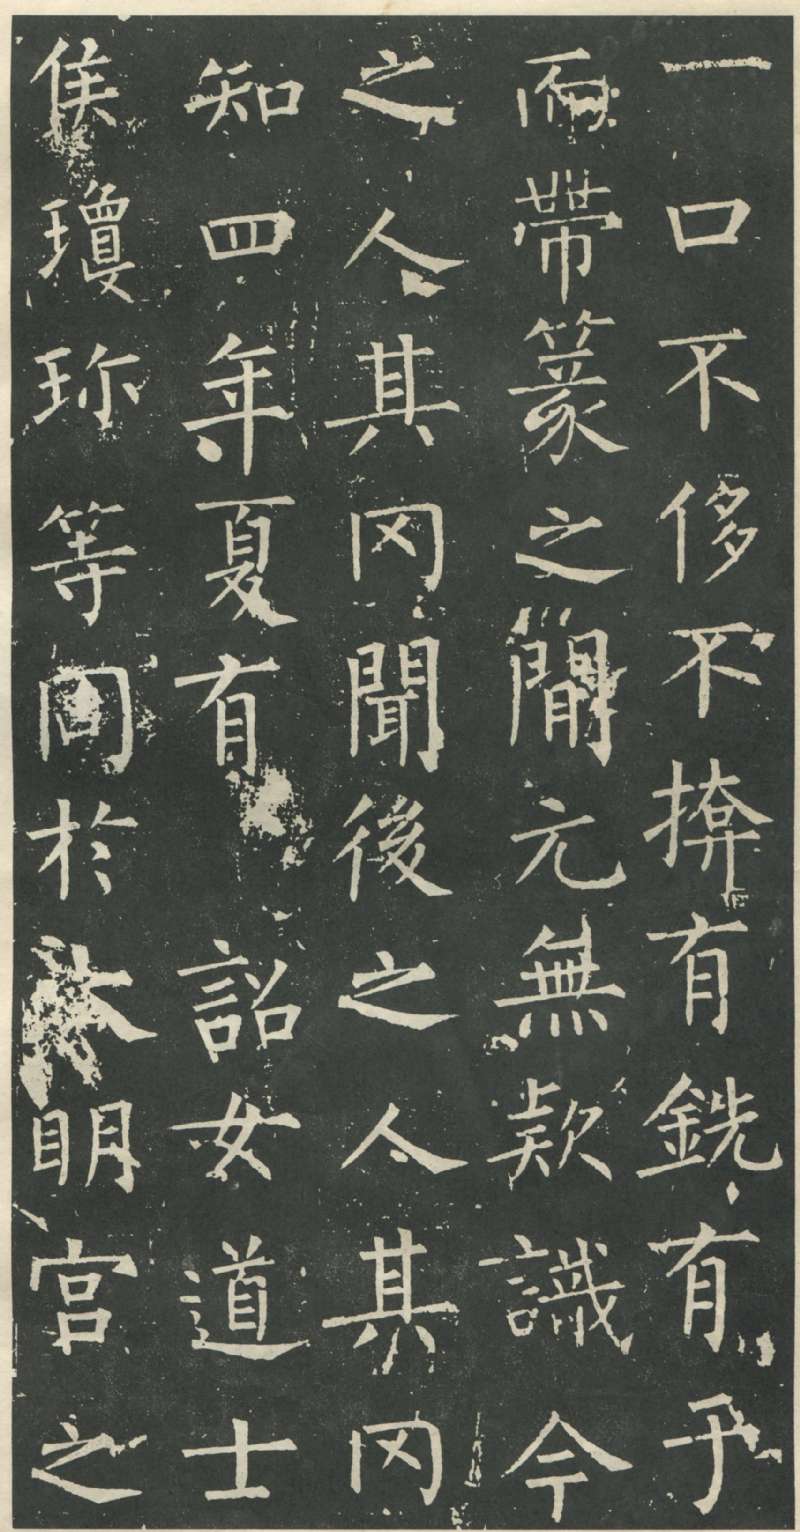 一口不侈不揜有銑有于
而帶篆之閒元無款識今
之人其罔聞後之人其罔
知四年夏有 詔女道士
侯瓊珎等同於大明宮之